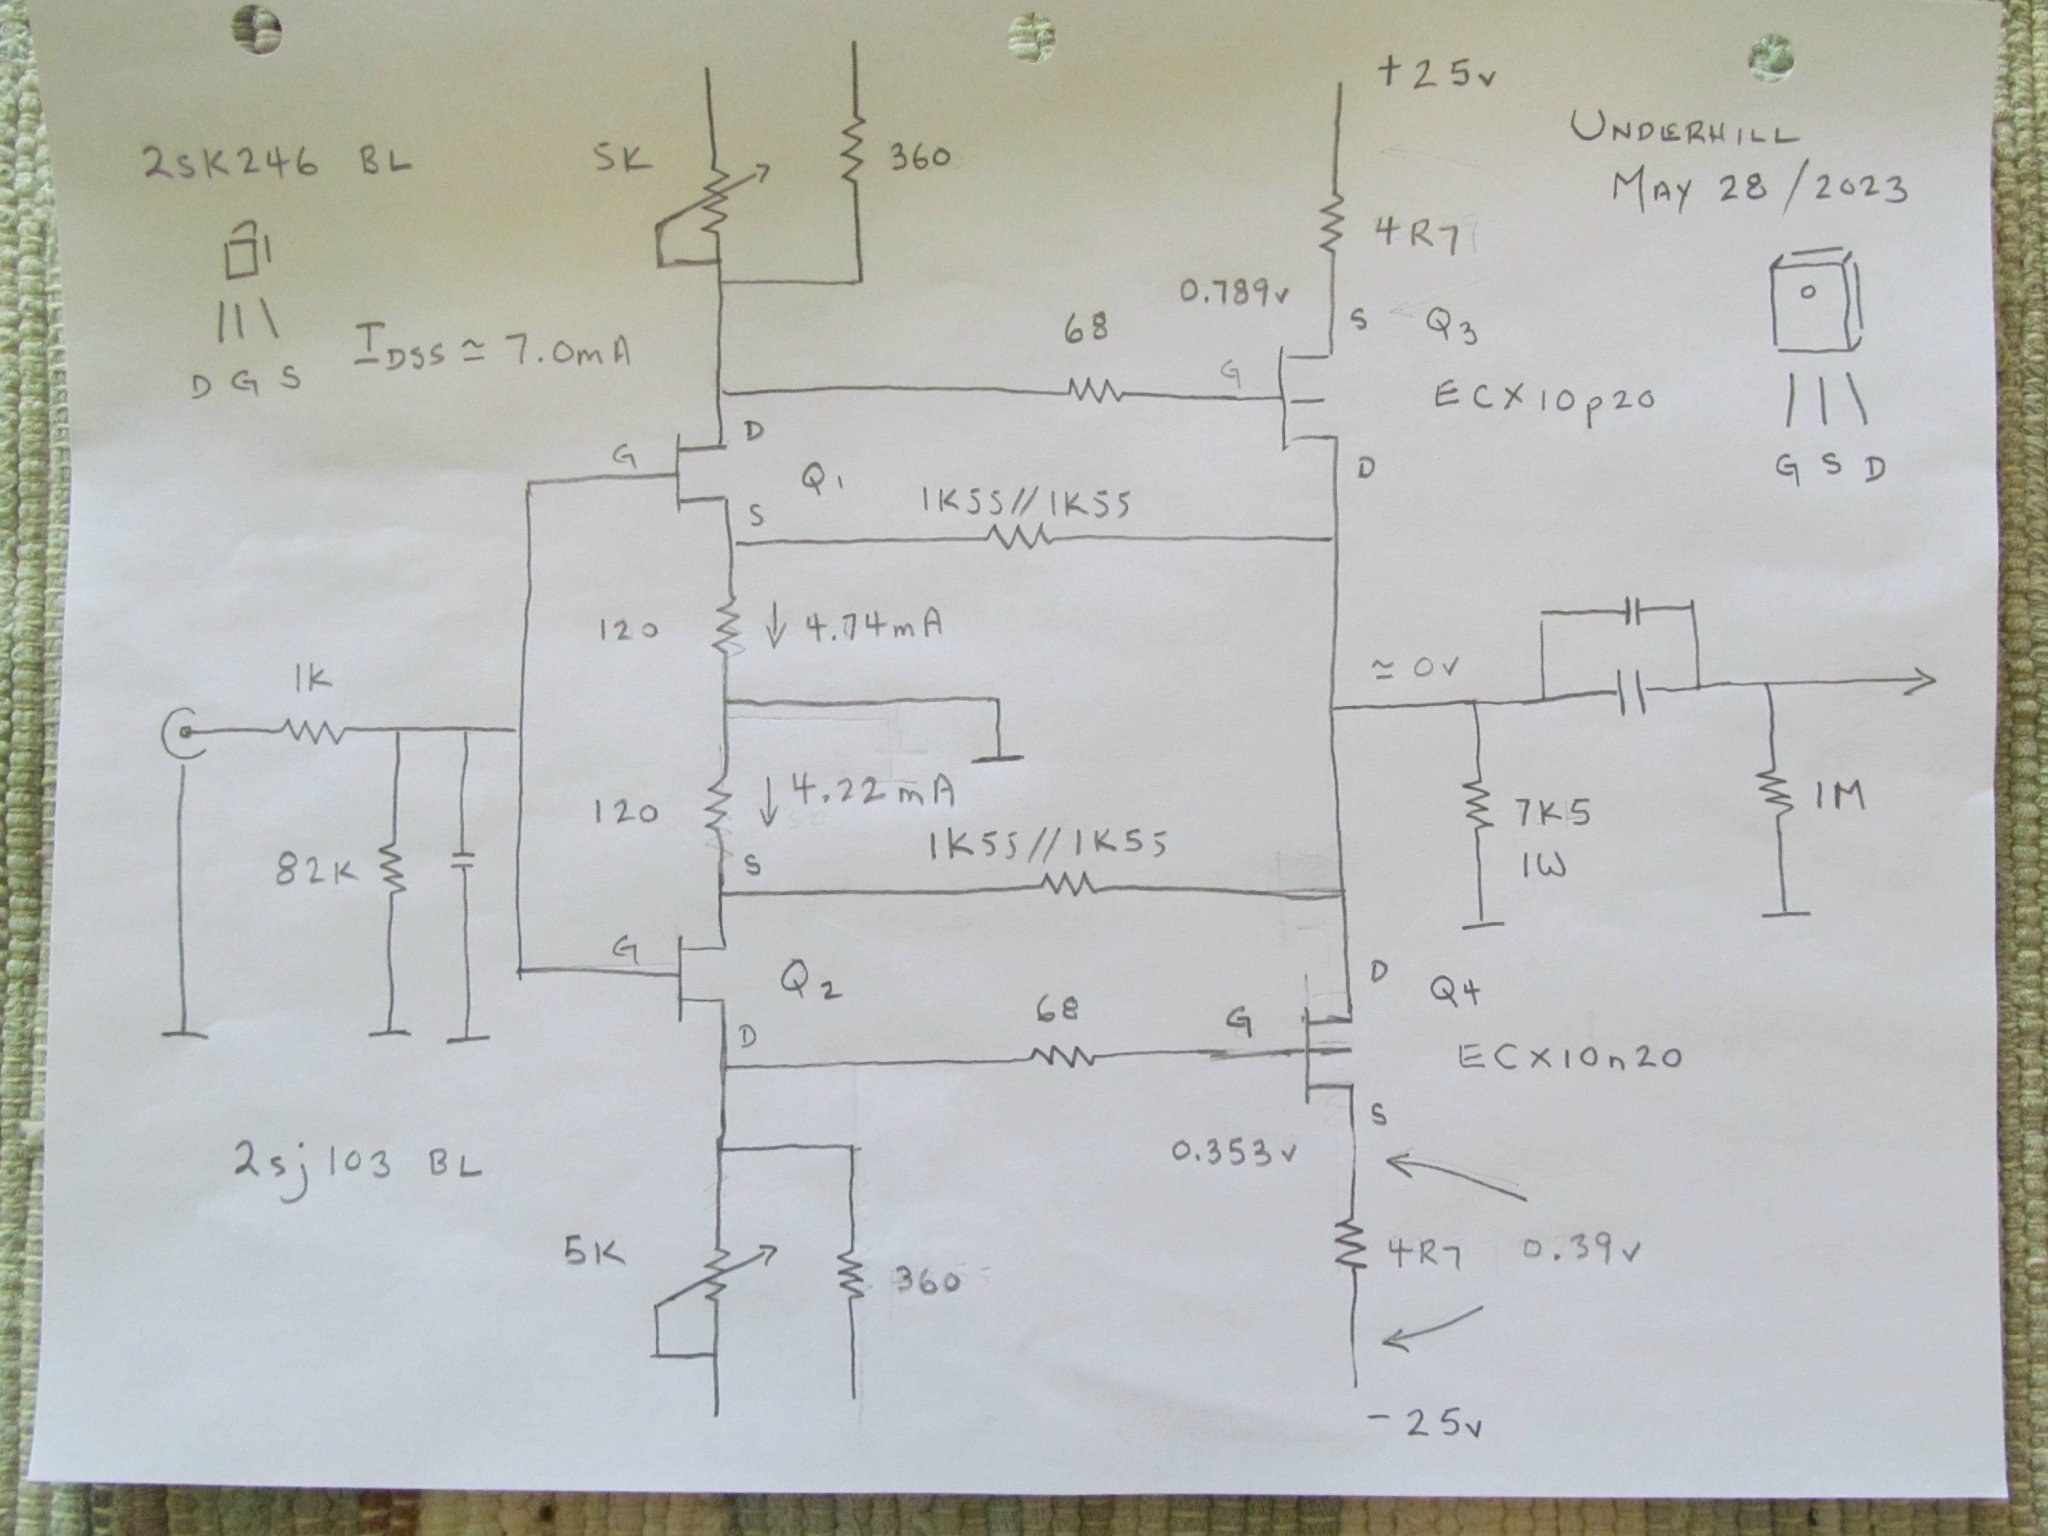 +25v
UNDERHILL
MAY 28/2023
2sK246 BL
5K
360
4R7
0.789v
S
Q3
68
IDSS ≃ 7.0mA
D G S
G
ECX10p20
D
G
Q1
1K55//1K55
D
G S D
S
120
↓ 4.74mA
≃ 0v
1K
120
↓ 4.22mA
7K5
1W
1M
82K
S
1K55//1K55
G
Q2
D
Q4
68
G
D
ECX10n20
S
2sj103 BL
0.353v
5K
360
4R7
0.39v
-25v